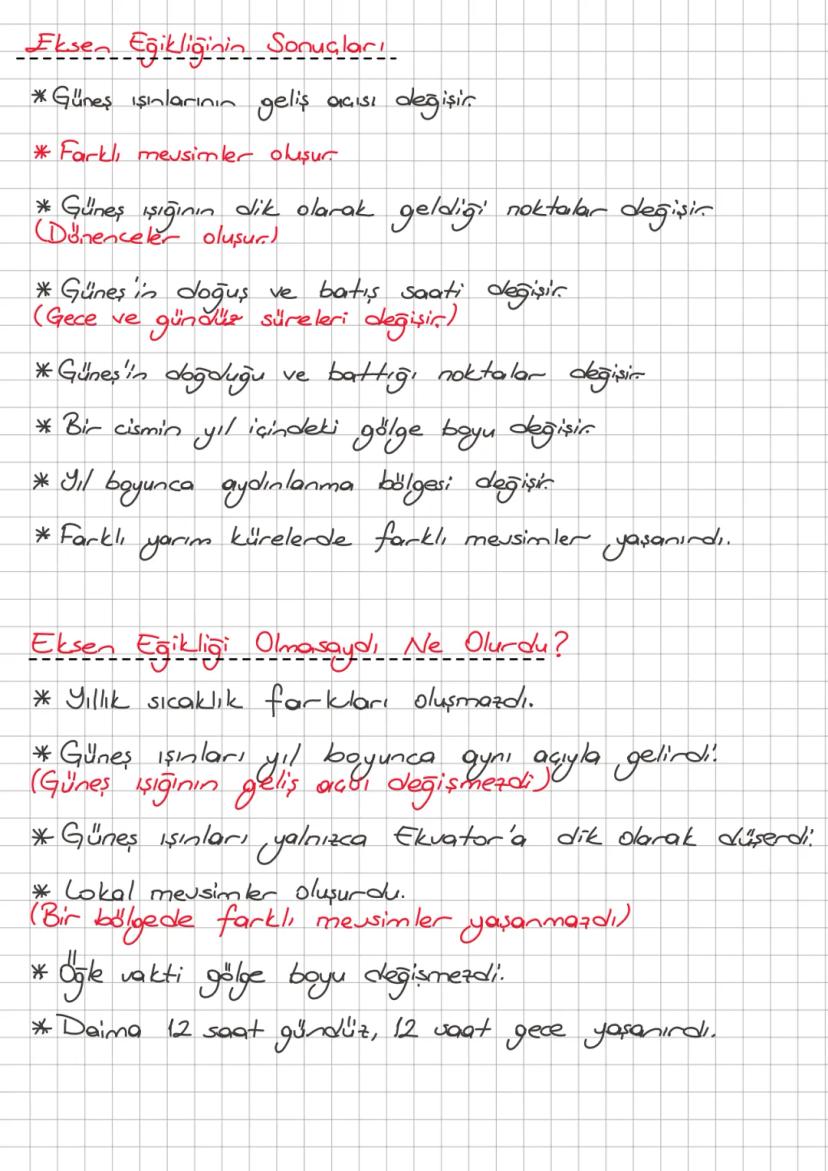 Eksen Eğikliğinin Sonuçları
* Güneş ışınlarının geliş açısı değişir.
* Farklı mevsimler oluşur.
* Güneş ışığının dik olarak geldiği noktalar değişir.
(Dönenceler oluşur.)
* Güneş'in doğuş ve batış saati değişir.
(Gece ve gündüz süreleri değişir.)
* Güneş'in doğduğu ve battığı noktalar değişir.
* Bir cismin yıl içindeki gölge boyu değişir.
* Yıl boyunca aydınlanma bölgesi değişir.
* Farklı yarım kürelerde farklı mevsimler yaşanırdı.
Eksen Eğikliği Olmasaydı Ne Olurdu?
* Yıllık sıcaklık farkları oluşmazdı.
* Güneş ışınları yıl boyunca aynı açıyla gelirdi.
(Güneş ışığının geliş açısı değişmezdi)
* Güneş ışınları yalnızca Ekvator'a dik olarak düşerdi.
* Lokal mevsimler oluşurdu.
(Bir bölgede farklı mevsimler yaşanmazdı)
* Öğle vakti gölge boyu değişmezdi.
* Daima 12 saat gündüz, 12 saat gece yaşanırdı.